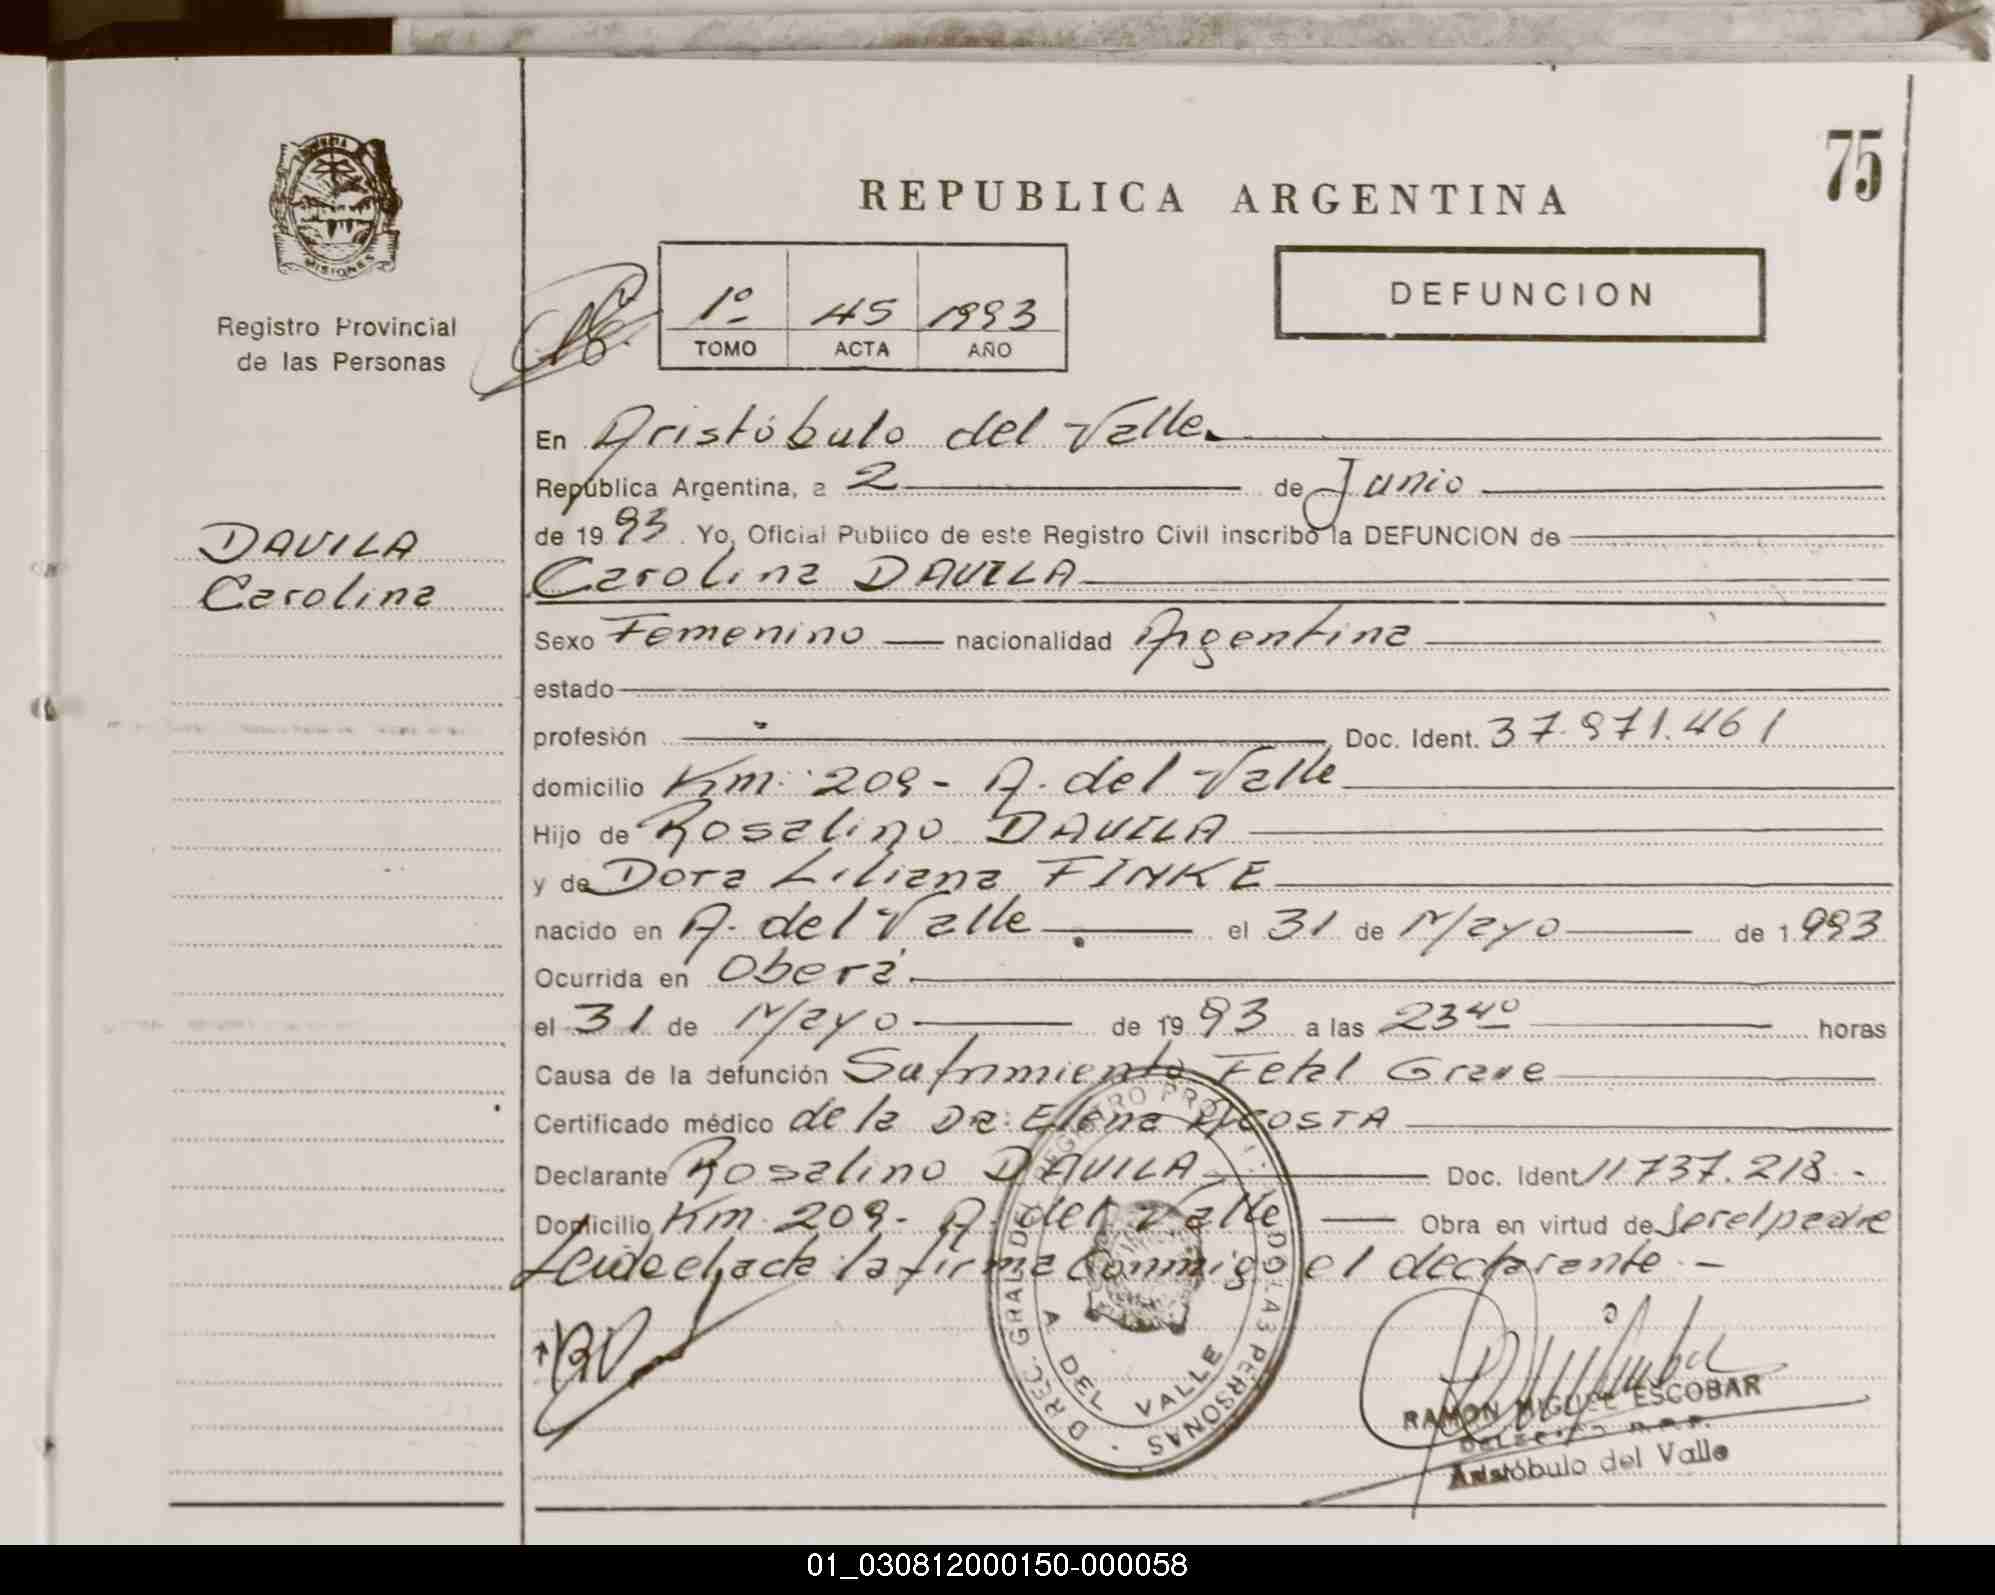 75
REPUBLICA ARGENTINA
MISIONES
Registro Provincial
de las Personas
1º 45 1993
TOMO ACTA AÑO
DEFUNCION
DAVILA
Carolina
En Aristóbulo del Valle.
República Argentina, a 2 de Junio
de 1993. Yo, Oficial Publico de este Registro Civil inscribo la DEFUNCION de
Carolina DAVILA
Sexo Femenino nacionalidad Argentina
estado
profesión Doc. Ident. 37.971.461
domicilio Km. 209- A. del Valle
Hijo de Rosalino DAVILA
y de Dora Liliana FINKE
nacido en A. del Valle el 31 de Mayo de 1.993
Ocurrida en Oberá.
el 31 de Mayo de 1993 a las 23⁴⁰ horas
Causa de la defunción Sufrimiento Fetal Grave
Certificado médico de la Dra: Elena ACOSTA
Declarante Rosalino DAVILA Doc. Ident 11.737.218.-
Domicilio Km. 209- A. del Valle Obra en virtud de ser el padre
Leida el acta la firma conmigo el declarante.-
DIREC. GRAL. DEL REGISTRO PROV. DE LAS PERSONAS
A DEL VALLE
RAMON MIGUEL ESCOBAR
Aristóbulo del Valle
01_030812000150-000058